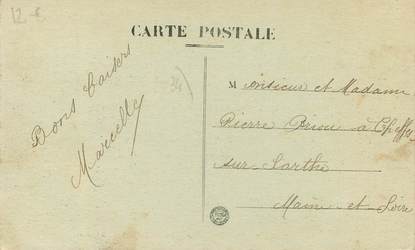 12 -€
CARTE POSTALE
Bons baisers
Marcelle
Monsieur et Madame
Pierre Priou à Cheffes
sur Sarthe
Maine et Loire